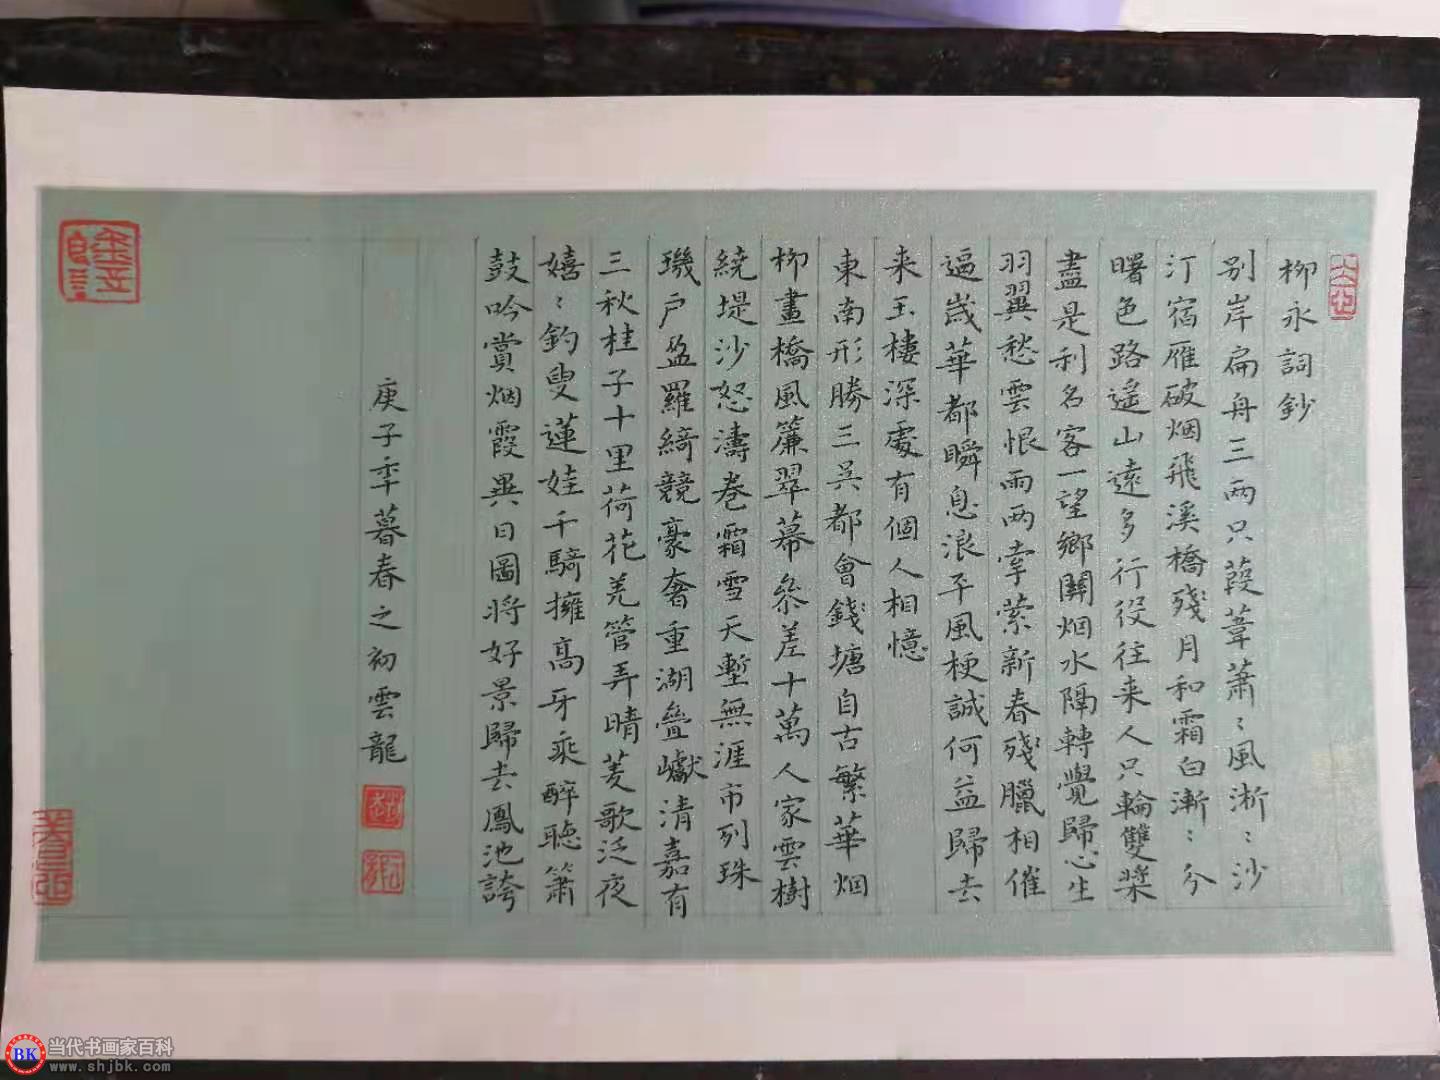 柳永詞鈔
別岸扁舟三两只葭葦蕭〻風淅〻沙
汀宿雁破烟飛溪橋殘月和霜白漸〻分
曙色路遥山遠多行役往来人只輪雙槳
盡是利名客一望鄉關烟水隔轉覺歸心生
羽翼愁雲恨雨两牽縈新春殘臘相催
逼歲華都瞬息浪平風梗誠何益歸去
来玉樓深處有個人相憶
東南形勝三吴都會錢塘自古繁華烟
柳畫橋風簾翠幕參差十萬人家雲樹
繞堤沙怒濤卷霜雪天塹無涯市列珠
璣户盈羅綺競豪奢重湖疊巘清嘉有
三秋桂子十里荷花羌管弄晴菱歌泛夜
嬉〻釣叟蓮娃千騎擁高牙乘醉聽簫
鼓吟賞烟霞異日圖將好景歸去鳳池誇
庚子年暮春之初雲龍
BK 当代书画家百科
www.shjbk.com